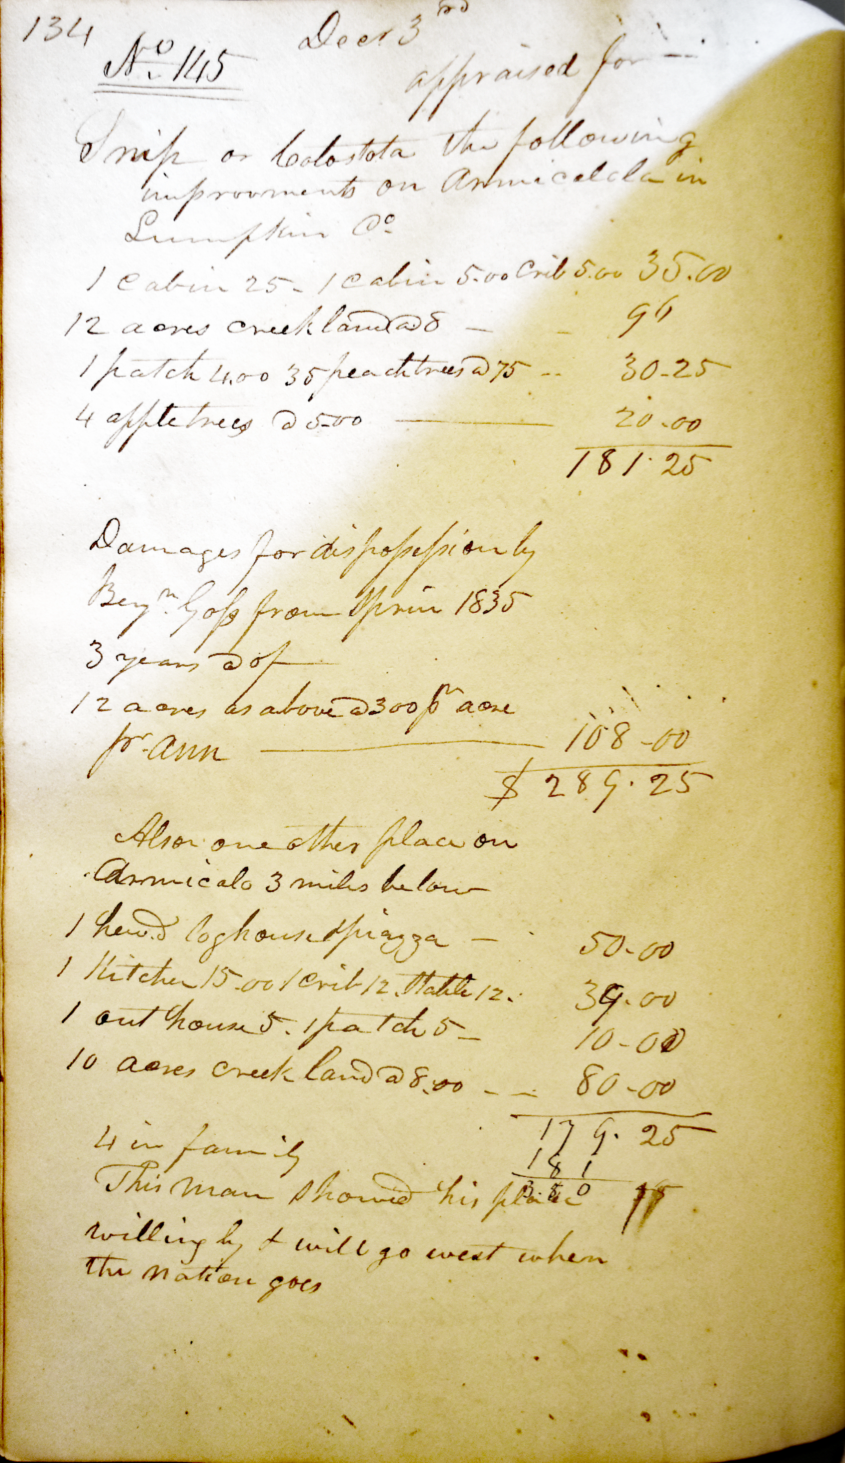 134
Decr 3rd
No. 145
appraised for —
Snip or Colostota the following
improvments on Armicalola in
Lumpkin Co
1 Cabin 25 - 1 Cabin 5.00 Crib 5.00 35.00
12 acres creek land @ 8 — - 96
1 patch 4.00 35 peach trees @ 75 -- 30-25
4 apple trees @ 5.00 — 20.00
181.25
Damages for dispossession by
Benjn. Goss from Spring 1835
3 years @ of
12 acres as above @ 300 pr acre
pr. Ann — 108-00
$ 289.25
Also one other place on
Armicalo 3 miles below
1 hewd. log house & piazza — 50-00
1 Kitchen 15.00 1 Crib 12. Stable 12. 39.00
1 out house 5. 1 patch 5 - 10-00
10 acres creek land @ 8.00 - - 80-00
179.25
4 in family
181
This man showed his place
360
willingly & will go west when
the nation goes